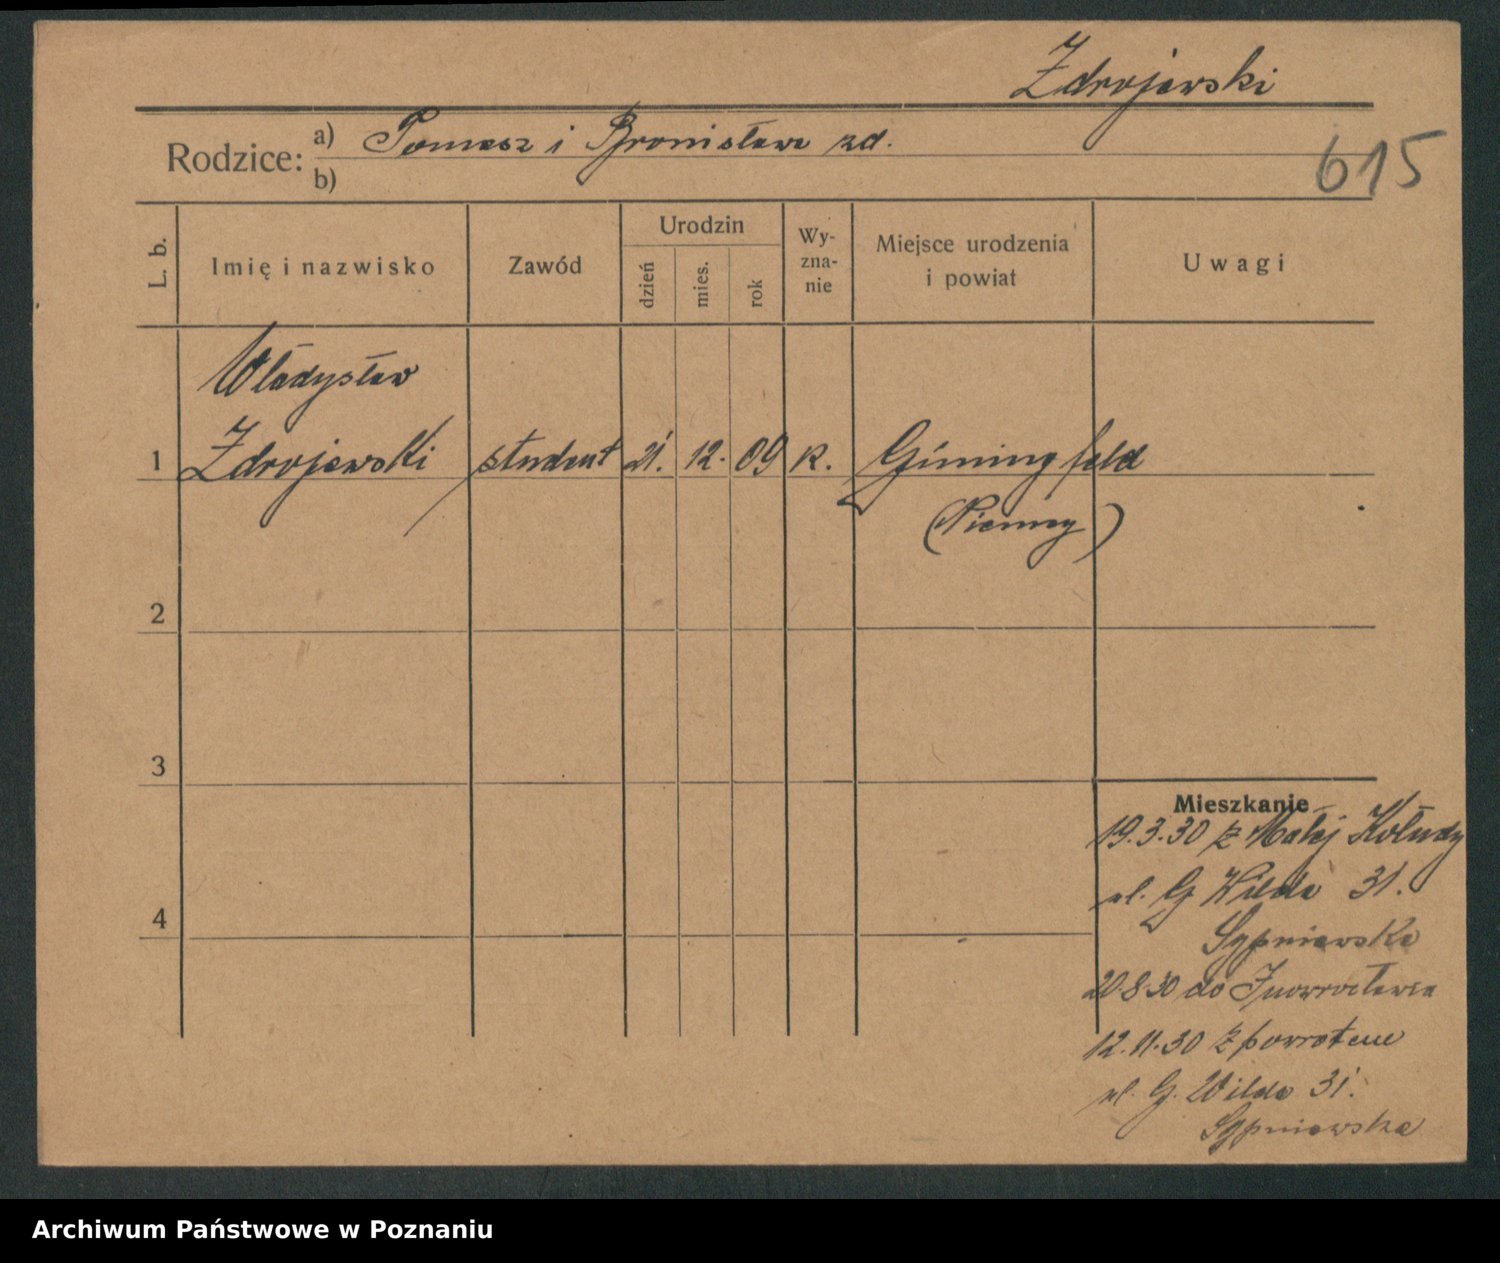 Zdrojewski
Rodzice: a) Tomasz i Bronisława zd.
b)
615
L. b.
Imię i nazwisko
Zawód
Urodzin
dzień
mies.
rok
Wy-
zna-
nie
Miejsce urodzenia
i powiat
Uwagi
Władysław
1 Zdrojewski student 21. 12. 09 k. Günningfeld
(Niemcy)
2
3
4
Mieszkanie
19.3.30 z Małej Kołudy
ul. G Wilda 31.
Sypniewska
20.8.30 do Inowrocławia
12.11.30 z powrotem
ul. G. Wilda 31.
Sypniewska
Archiwum Państwowe w Poznaniu